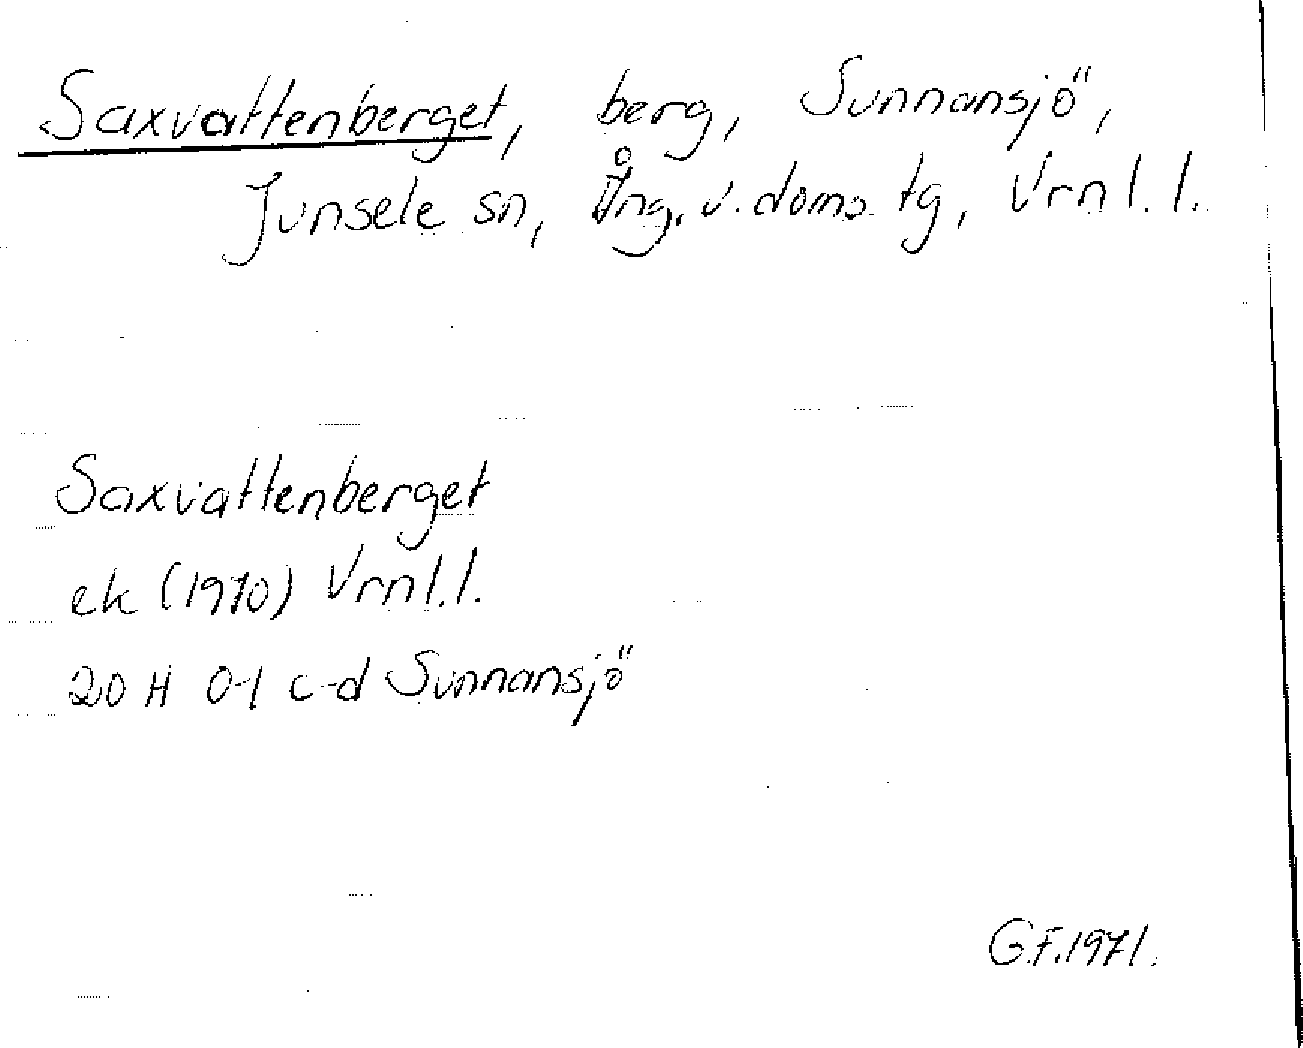 Saxvattenberget, berg, Sunnansjö,
Junsele sn, Ång. v. doms. tg, Vrnl.l.
Saxvattenberget
ek (1970) Vrnl.l.
20 H 0-1 c-d Sunnansjö
G.F. 1971.